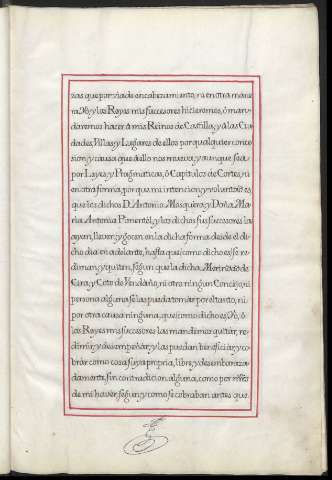 zas que por via de encabezamiento, ni en otra mane
ra Yo, y los Reyes mis successores hicieremos, ò man
daremos hacer à mis Reinos de Castilla, y à las Ciu
dades, Villas, y Lugares de ellos por qualquier conce
sion, y causa que à ello nos mueva, y aunque sea
por Leyes, y Pragmaticas, ò Capitulos de Cortes, ni
en otra forma, porque mi intencion, y voluntad es
que los dichos D. Antonio Mosquera, y Doña Ma
ria Antonia Pimentèl, y los dichos sus successores lo
ayan, lleven, y gocen en la dicha forma desde el di
cho dia en adelante, hasta que como dicho es se re
diman, y quiten, segun que la dicha Merindad de
Cira, y Coto de Vendaño, ni otro ningun Concejo, ni
persona alguna se las puedan tomar por el tanto, ni
por otra causa ninguna, que como dicho es Yo, ò
los Reyes mis successores las mandemos quitar, re
dimir, y desempeñar, y las puedan beneficiar, y co
brar como cosa suya propria, libre, y desembaraza
damente, sin contradicion alguna, como por
de mi haver, segun, y como se cobraban antes que